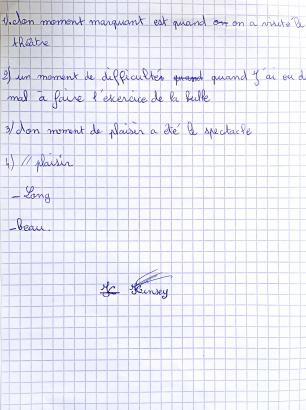 1) don moment marquant est quand on on a visité l
théâtre
2) un moment de difficultés quand quand j'ai eu d
mal à faire l'exercice de la bulle
3) don moment de plaisir a été le spectacle
4) // plaisir
- Long
- beau.